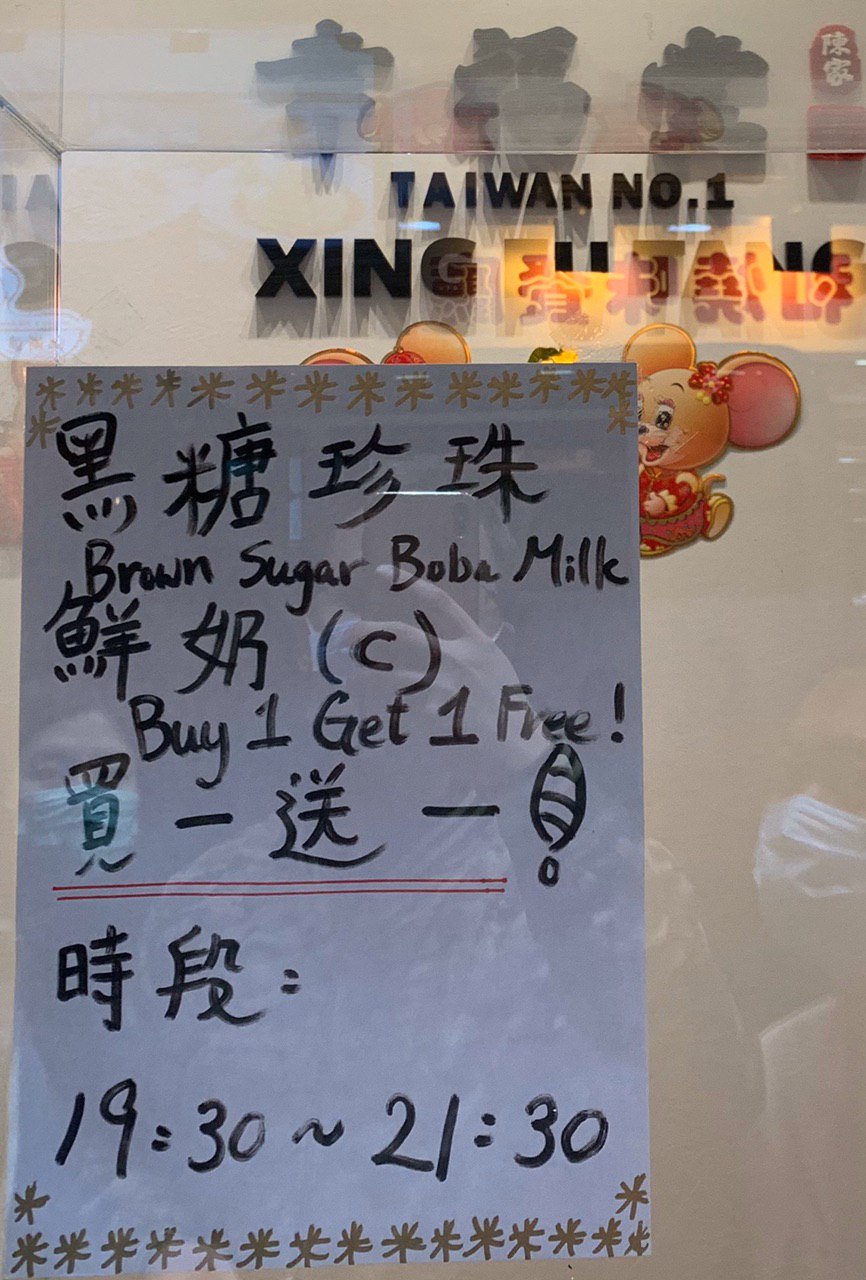 幸福堂
陳家
TAIWAN NO.1
XING FU TANG
黑糖珍珠
Brown Sugar Boba Milk
鮮奶(C)
Buy 1 Get 1 Free!
買一送一!
時段:
19:30~21:30